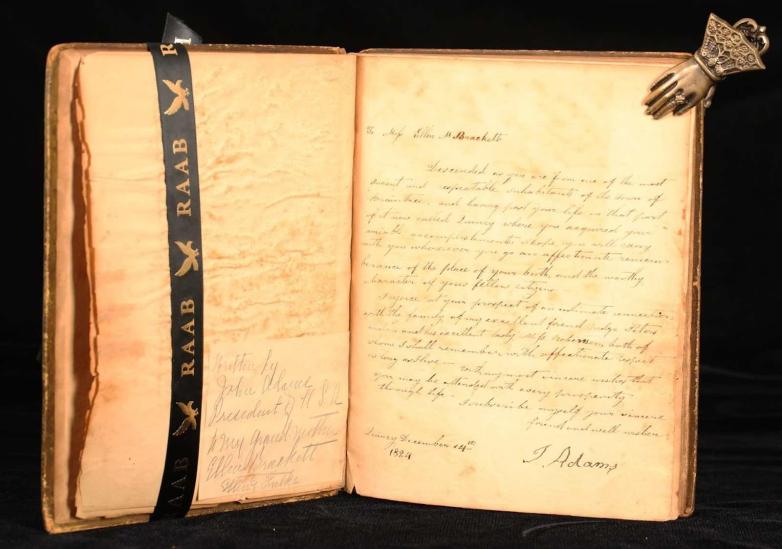 RAAB
RAAB
RAAB
AAB
Written by
John Adams
President of U.S.A
to my Grand mother
Ellen Brackett
To Miss Ellen M Brackett
Descended as you are from one of the most
ancient and respectable inhabitants of the town of
Braintree, and having past your life in that part
of it now called Quincy where you acquired your
amiable accomplishments I hope, you will carry
with you wheresoever you go an affectionate remem-
berance of the place of your birth, and the worthy
character of your fellow citizens
I rejoice at your prospect of an intimate connection
with the family of my excellent friend Judge Peters
and his excellent lady Miss Robinson both of
whom I shall remember with affectionate respect
as long as I live — with my most sincere wishes that
you may be attended with every prosperity
through life — I subscribe myself your sincere
friend and well wisher
Quincy December 24th
1824
J. Adams